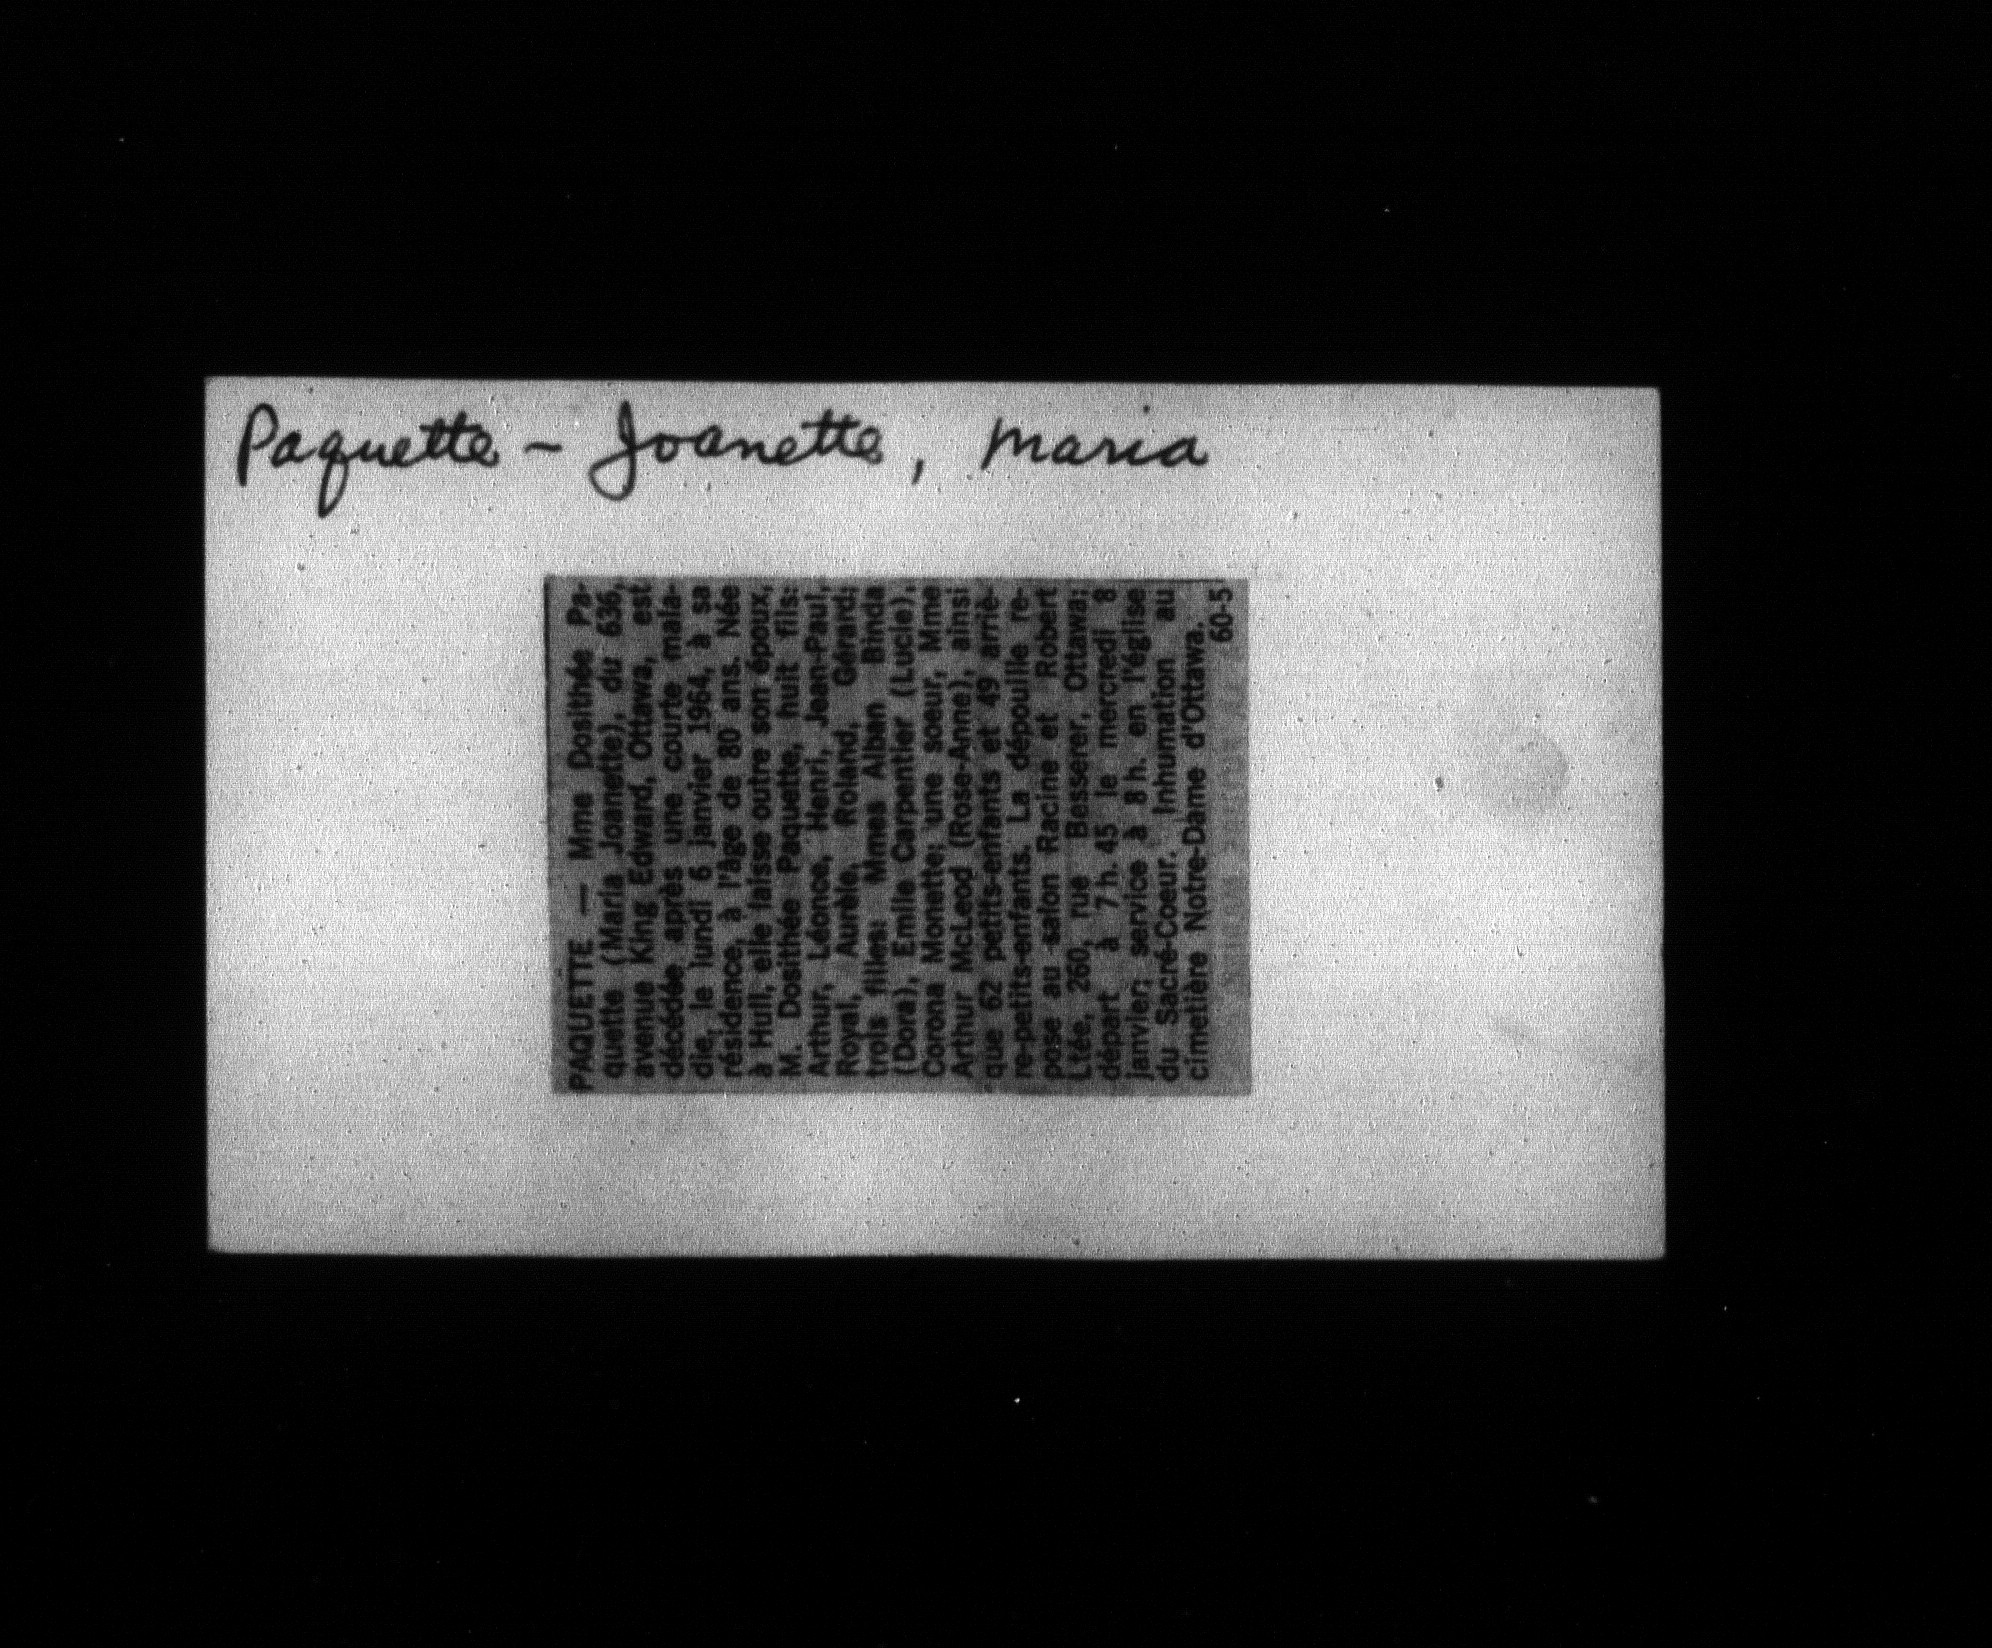 Paquette - Joanette, Maria
PAQUETTE — Mme Dosithée Pa-
quette (Maria Joanette), du 636,
avenue King Edward, Ottawa, est
décédée après une courte mala-
die, le lundi 6 janvier 1964, à sa
résidence, à l'âge de 80 ans. Née
à Hull, elle laisse outre son époux,
M. Dosithée Paquette, huit fils:
Arthur, Léonce, Henri, Jean-Paul,
Royal, Aurèle, Roland, Gérard;
trois filles: Mmes Alban Binda
(Dora), Emile Carpentier (Lucie),
Corona Monette; une soeur, Mme
Arthur McLeod (Rose-Anne), ainsi
que 62 petits-enfants et 49 arriè-
re-petits-enfants. La dépouille re-
pose au salon Racine et Robert
Ltée, 260, rue Besserer, Ottawa;
départ à 7 h. 45 le mercredi 8
janvier; service à 8 h. en l'église
du Sacré-Coeur. Inhumation au
cimetière Notre-Dame d'Ottawa.
60-5